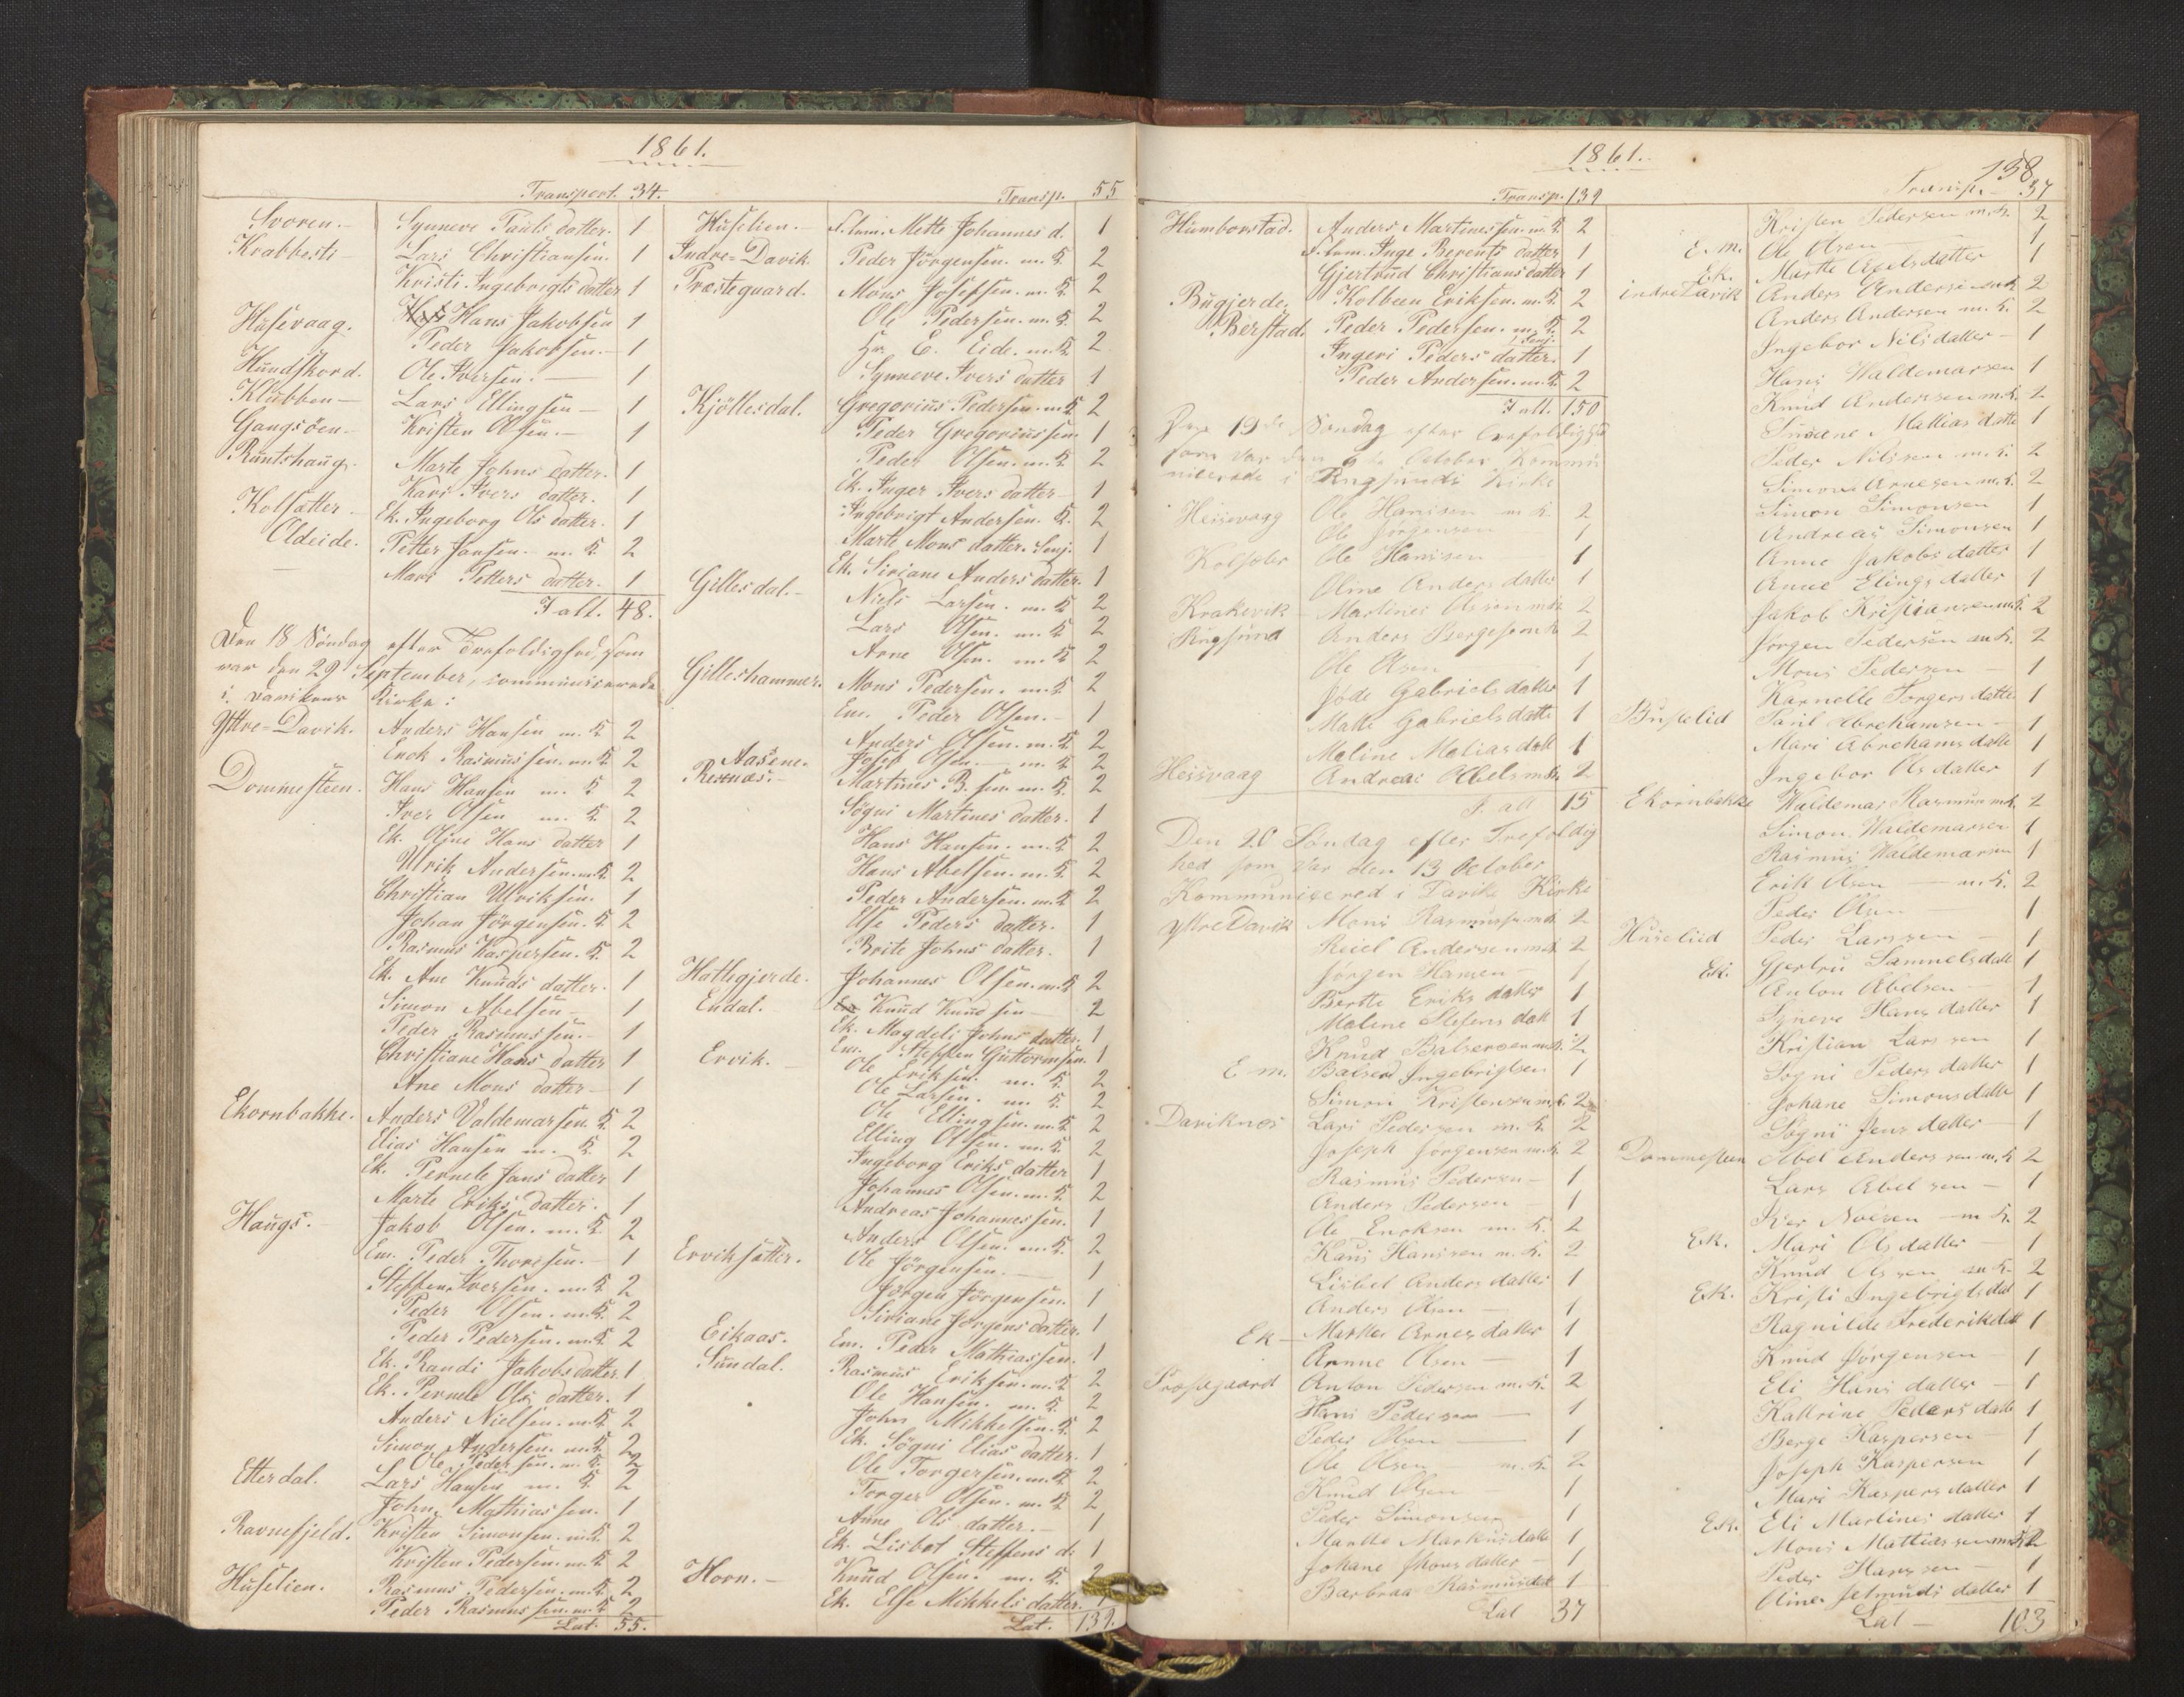 1861.
Transport. 34.
Svoren. Synneve Pauls datter. 1
Krabbesti Lars Christiansen. 1
Kristi Ingebrigts datter 1
Husevaag. Hans Jakobsen 1
Peder Jakobsen. 1
Hundskord. Ole Iversen. 1
Klubben Lars Ellingsen 1
Gangsöen Kristen Olsen. 1
Runtshaug. Marte Johns datter. 1
Kari Ivers datter. 1
Kolsætter. Ek. Ingeborg Ols datter. 1
Oldeide. Petter Jansen. m. K. 2
Mari Petters datter. 1
I alt. 48.
Den 18 Söndag efter Trefoldighed, som
var den 29 September, communicerede
i Davikens Kirke:
Yttre-Davik. Anders Hansen m. K 2
Enok Rasmussen. m. K 2
Dommesteen. Hans Hansen m. K 2
Iver Olsen m. K 2
Ek. Oline Hans datter 1
Ulrik Andersen. m. K. 2
Christian Ulriksen. 1
Johan Jörgensen. K 2
Rasmus Kaspersen. K. 2
Ek. Ane Knuds datter. 1
Simon Abelsen 1
Peder Rasmussen. 1
Christiane Hans datter 1
Ane Mons datter 1
Ekornbakke. Anders Valdemarsen. K 2
Elias Hansen m. K. 2
Ek. Pernele Jans datter 1
Marte Eriks datter. 1
Haugs. Jakob Olsen. m. K. 2
Em. Peder Thoresen. 1
Steffen Iversen. m. K 2
Peder Olsen. m. K. 2
Peder Pedersen. m. K 2
Ek. Randi Jakobsdatter. 1
Ek. Pernele Ols datter. 1
Anders Nielsen. m. K. 2
Simon Andersen. m. K. 2
Ole Pedersen. m. K. 2
Etterdal. Lars Hansen m. K 2
John Mathiassen. 1
Ravnefjeld. Kristen Simonsen. m. K. 2
Kristen Pedersen. m. K 2
Huselien. Rasmus Pedersen. m. K. 2
Peder Rasmussen. m. K 2
Lat. 55.
Transp. 55
Huselien. Mette Johannes d. 1
Indre-Davik. Peder Jörgensen. m. K 2
Præsteguard. Mons Josefsen. m. K. 2
Ole Pedersen. m. K. 2
Hr. E. Eide. m. K. 2
Synneve Ivers datter 1
Kjöllesdal. Gregorius Pedersen. m. K 2
Peder Gregoriussen. 1
Peder Olsen. m. K. 2
Ek. Inger Ivers datter 1
Ingebrigt Andersen. K. 2
Marte Mons datter. Senj. 1
Ek. Siriane Anders datter. 1
Gillesdal. Niels Larsen. m. K 2
Lars Olsen. m. K 2
Arne Olsen. m. K 2
Gilleshammer. Mons Pedersen. m. K 2
Em. Peder Olsen. 1
Anders Olsen. m. K 2
Aasene. Josef Olsen. m. K 2
Resnæs. Martines B.sen. m. K. 2
Søgni Martines datter. 1
Hans Hansen. m. K. 2
Hans Abelsen. m. K. 2
Peder Andersen. m. K 2
Else Peders datter. 1
Brite Johns datter. 1
Hathgjerde. Johannes Olsen. m. K 2
Endal. Knud Knudsen 2
Ek. Magdeli Johns datter. 1
Em. Steffen Guttormsen. 1
Ervik. Ole Eriksen. m. K. 2
Ole Larsen. m. K 2
Ole Ellingsen. m. K 2
Elling Olsen. m. K 2
Ingeborg Eriks datter 1
Johannes Olsen. m. K 2
Andreas Johannessen. 1
Anders Olsen. m. K. 2
Erviksætter. Ole Jörgensen. 1
Jörgen Jörgensen. 1
Siriane Jorgens datter. 1
Eikaas. Em. Peder Mathiassen. 1
Sundal. Rasmus Eriksen. m. K 2
Ole Hansen. m. K. 2
John Mikkelsen. K 2
Ek. Sögni Elias datter. 1
Ole Torgersen. m. K 2
Torger Olsen. m. K 2
Anne Ols datter. 1
Ek. Lisbet Steffens d. 1
Horn. Knud Olsen. m. K.
Ek. Else Mikkels datter.
Lat. 139.
1861.
138
Transp. 139
Humborstad. Anders Martinessen. m. K 2
Inge Berents datter 1
Gjertrud Christians datter 1
Bugjerde. Kolbeen Eriksen. m. K 2
Berstad. Peder Pedersen. m. K. 2
Ingeri Peders datter. Senj. 1
Peder Andersen. m. K 2
I alt. 150
19de Söndag efter Trefoldighed
som var den 6 te October Kommu
nicerede i Rugsunds Kirke
Heisvaag Ole Hansen m K. 2
Ole Jørgensen 1
Kolsæter Ole Hansen 1
Oline Anders datter 1
Krakevik Martines Olsen m K 2
Rugsund Anders Bergesen m K 2
Ole Olsen 1
Gabriels datter 1
Malli Gabriels datte 1
Maline Matias datt 1
Heisvaag Andreas Abelsen m K. 2
I alt 15
Den 20 Søndag efter Trefoldig
hed som var den 13 October
Kommunisered i Davike Kirke
Yttre Davik Mons Rasmussen m K 2
Andersen m K 2
Jørgen Hansen 1
Berthe Eriks datter 1
Malene Stefens datt 1
Knud Balsersen m K. 2
E m. Balser Ingebrigtsen 1
Simon Kristensen m K. 2
Daviknes Lars Pedersen m. K 2
Joseph Jörgensen m. K 2
Rasmus Pedersen 1
Anders Pedersen 1
Ole Enoksen m. K. 2
Hans Hansen m. K. 2
Lisbet Anders datter 1
Anders Olsen 1
Ek Marthe Arnes datter 1
Anne Olsen 1
Præstegaard Anton Pedersen m. K. 2
Hans Pedersen 1
Peder Olsen 1
Ole Olsen m. K 2
Knud Olsen 1
Peder Simonsen 1
Marthe Markus datter 1
Johane Thons datter 1
Barbraa Rasmus datt 1
Lat 37
Transp. 37
Kristen Pedersen m. K. 2
E. m. Ole Olsen 1
Ek. Marthe Axels datter 1
indre Davik Anders Andersen m K 2
Anders Andersen m. K. 2
Ingebor Nils datter 1
Hans Waldemarsen 1
Knud Anderssen m. K. 2
Susane Mattias datte 1
Peder Nilssen m. K. 2
Simon Arnesen m. K. 2
Simon Simonsen 1
Andreas Simonsen 1
Anne Jakobs datter 1
Anne Elings datter 1
Jakob Kristiansen m K. 2
Jørgen Pedersen m K. 2
Mons Pedersen 1
Karnelle Torgers datte 1
Buskelid Paul Abrehamsen 1
Mari Abrehams datte 1
Ingebor Ols datter 1
Ekornbakke Waldemar Rasmusen m K. 2
Simon Waldemarsen 1
Rasmus Waldemarsen 1
Erik Olsen m. K. 2
Peder Olsen 1
Huselied Peder Larssen 1
Ek. Gjertru Sammels datt 1
Anton Abelsen 1
Syneve Hans datter 1
Kristian Larssen 1
Sogni Peders datter 1
Johane Simons datte 1
Søgni Jens datter 1
Dommesteen Abel Anderssen m. K 2
Lars Abelsen 1
Iver m K. 2
E.K. Mari Ols datter 1
Knud Olssen m K 2
E.K. Kristi Ingebrigts datt 1
Ragnilde Frederik datt 1
Knud Jørgensen 1
Eli Hans datter 1
Kattrine Peders datte 1
Berge Kaspersen 1
Joseph Kaspersen 1
Mari Kaspers datter 1
E.K. Eli Martines datter 1
Mons Mattiassen m K 2
Peder Hanssen 1
Oline datter 1
Lat 103